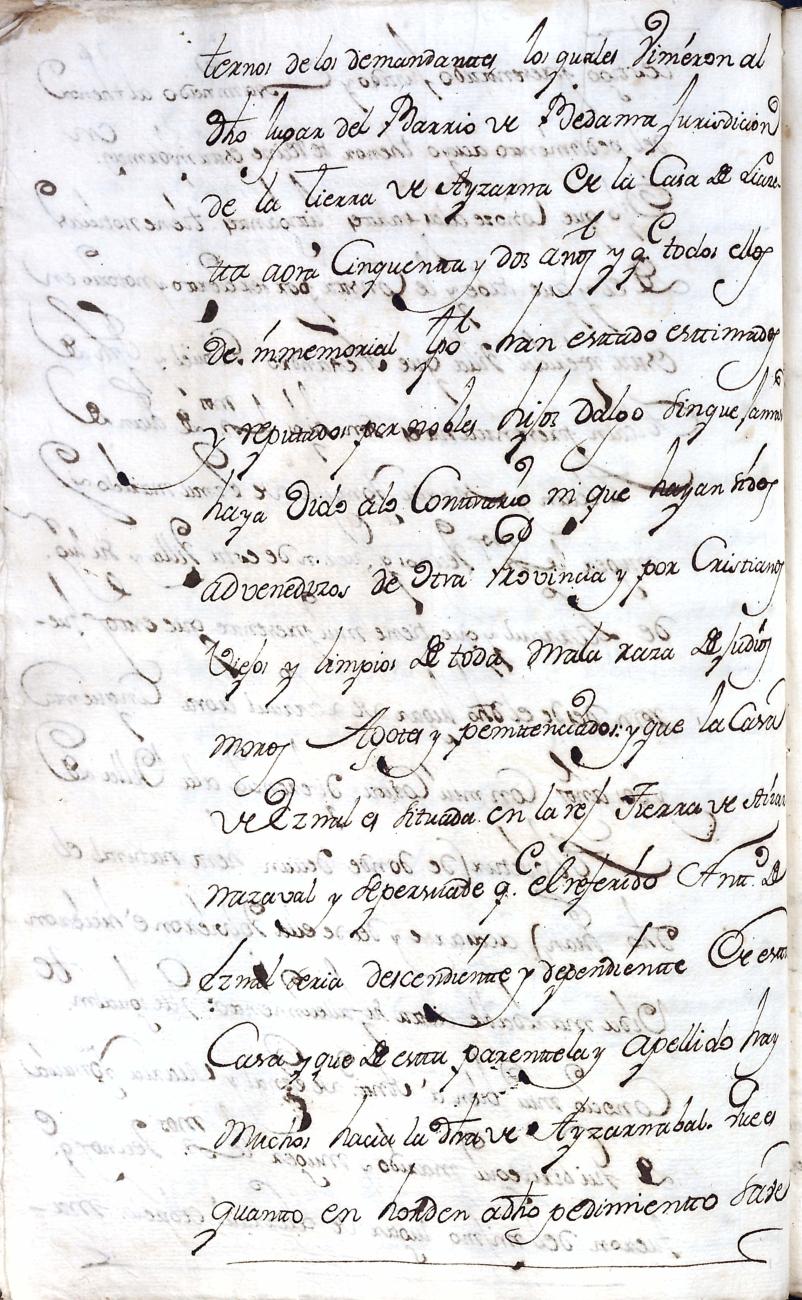 ternos de los demandantes los quales Vinieron al
dho lugar del Barrio de Bedama Jurisdicion
de la tierra de Ayzarna de la Casa de Liare-
tta aora Cinquentta y dos años y q.e todos ellos
de ynmemorial tpo han esttado esttimados
y reputados por nobles hijos dalgo sinque jamas
haya Dido alo Conttrario ni que hayan sidos
advenedizos de Otra Provincia y por Cristianos
Viejos y limpios de toda Mala raza de Judios
moros Agotes y penitenciados: y que la Casa
de Eznal es situada en la refd.a Tierra de Aizar
nazaval y sepersuade q.e el referido Antt.o de
Eznal seria descendientte y dependientte de estta
Casa y que de estta parenttela y apellido hay
Muchos hacia la dha de Ayzarnabal. Que es
quanto en horden a dho pedimientto save